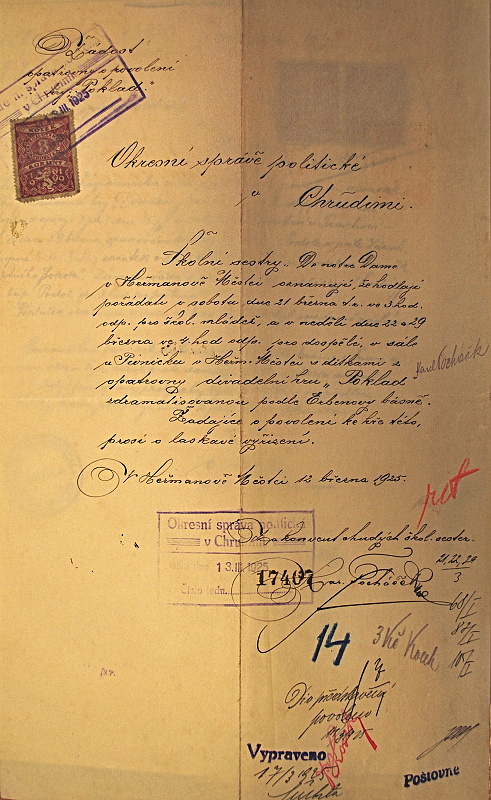 Žádost
opatrovny o povolení
hry "Poklad."
v Chrudimi
III 1925
Okresní správě politické
v
Chrudimi.
Školní sestry „De notre Dame
v Heřmanově Městci oznamují, že hodlají
pořádati v sobotu, dne 21 března t.r. ve 3 hod.
odp. pro škol. mládež, a v neděli dne 22 a 29
března ve 4 hod odp. pro dospělé, v sále
u Pivničků v Heřm. Městci s dítkami z
opatrovny divadelní hru „Poklad"
zdramatisovanou podle Erbenovy básně.
Žádajíce o povolení ke hře této,
prosí o laskavé vyřízení.
V Heřmanově Městci 12 března 1925.
Okresní správa politická
v Chrudimi
13.III.1925
Číslo jedn.
17407
Za konvent chudých škol. sester.
21, 22, 29
3
14
3 Kč
povoleno
Vypraveno
17/3
Poštovné